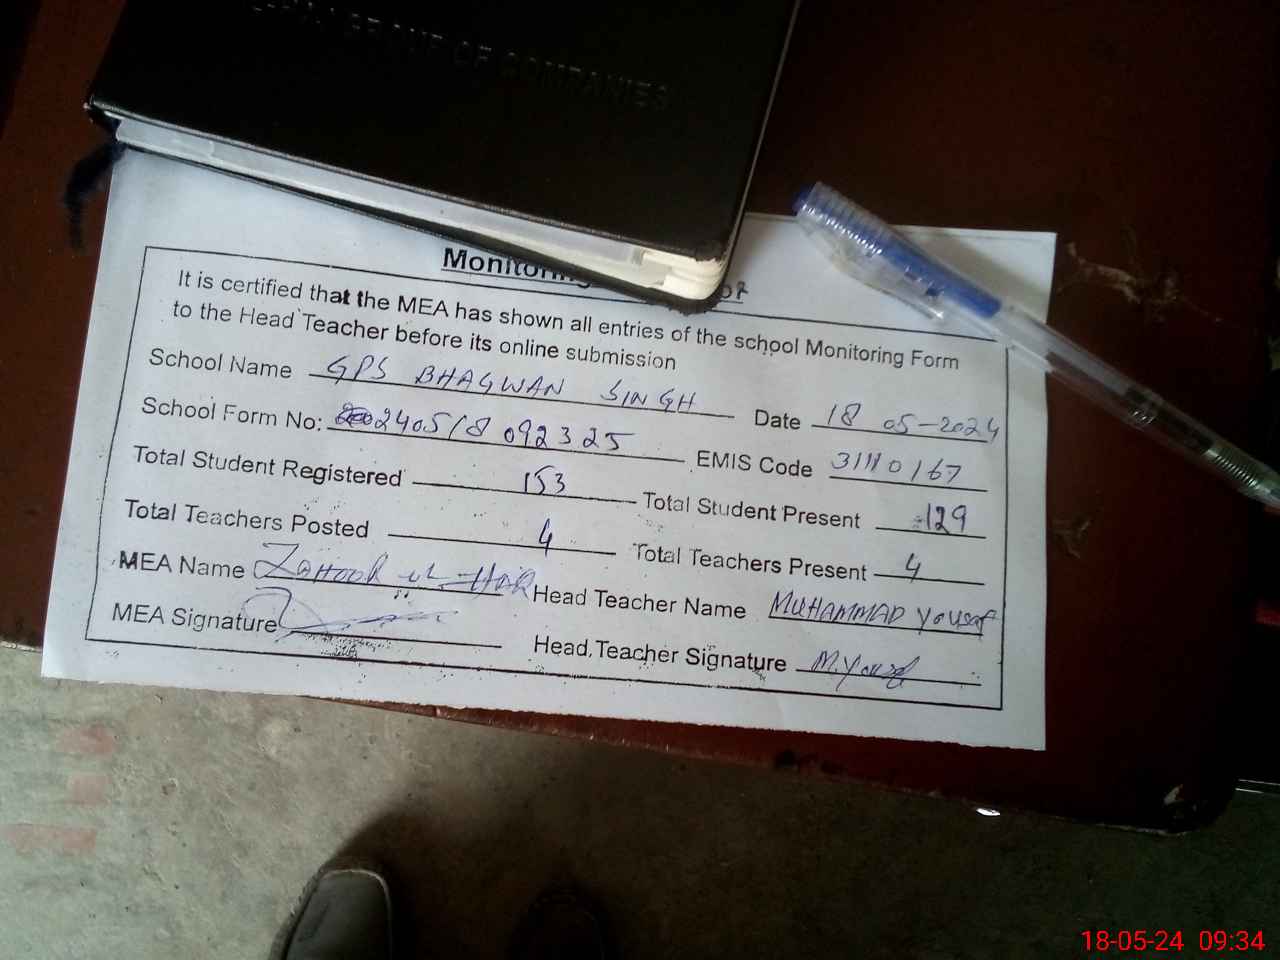 GROUP OF COMPANIES
Monitoring
It is certified that the MEA has shown all entries of the school Monitoring Form
to the Head Teacher before its online submission
School Name GPS BHAGWAN SINGH Date 18 05-2024
School Form No: 20240518 092325 EMIS Code 31110167
Total Student Registered 153 Total Student Present 129
Total Teachers Posted 4 Total Teachers Present 4
MEA Name Zahoor ul Haq Head Teacher Name MUHAMMAD Yousaf
MEA Signature Head Teacher Signature M.Yousaf
18-05-24 09:34